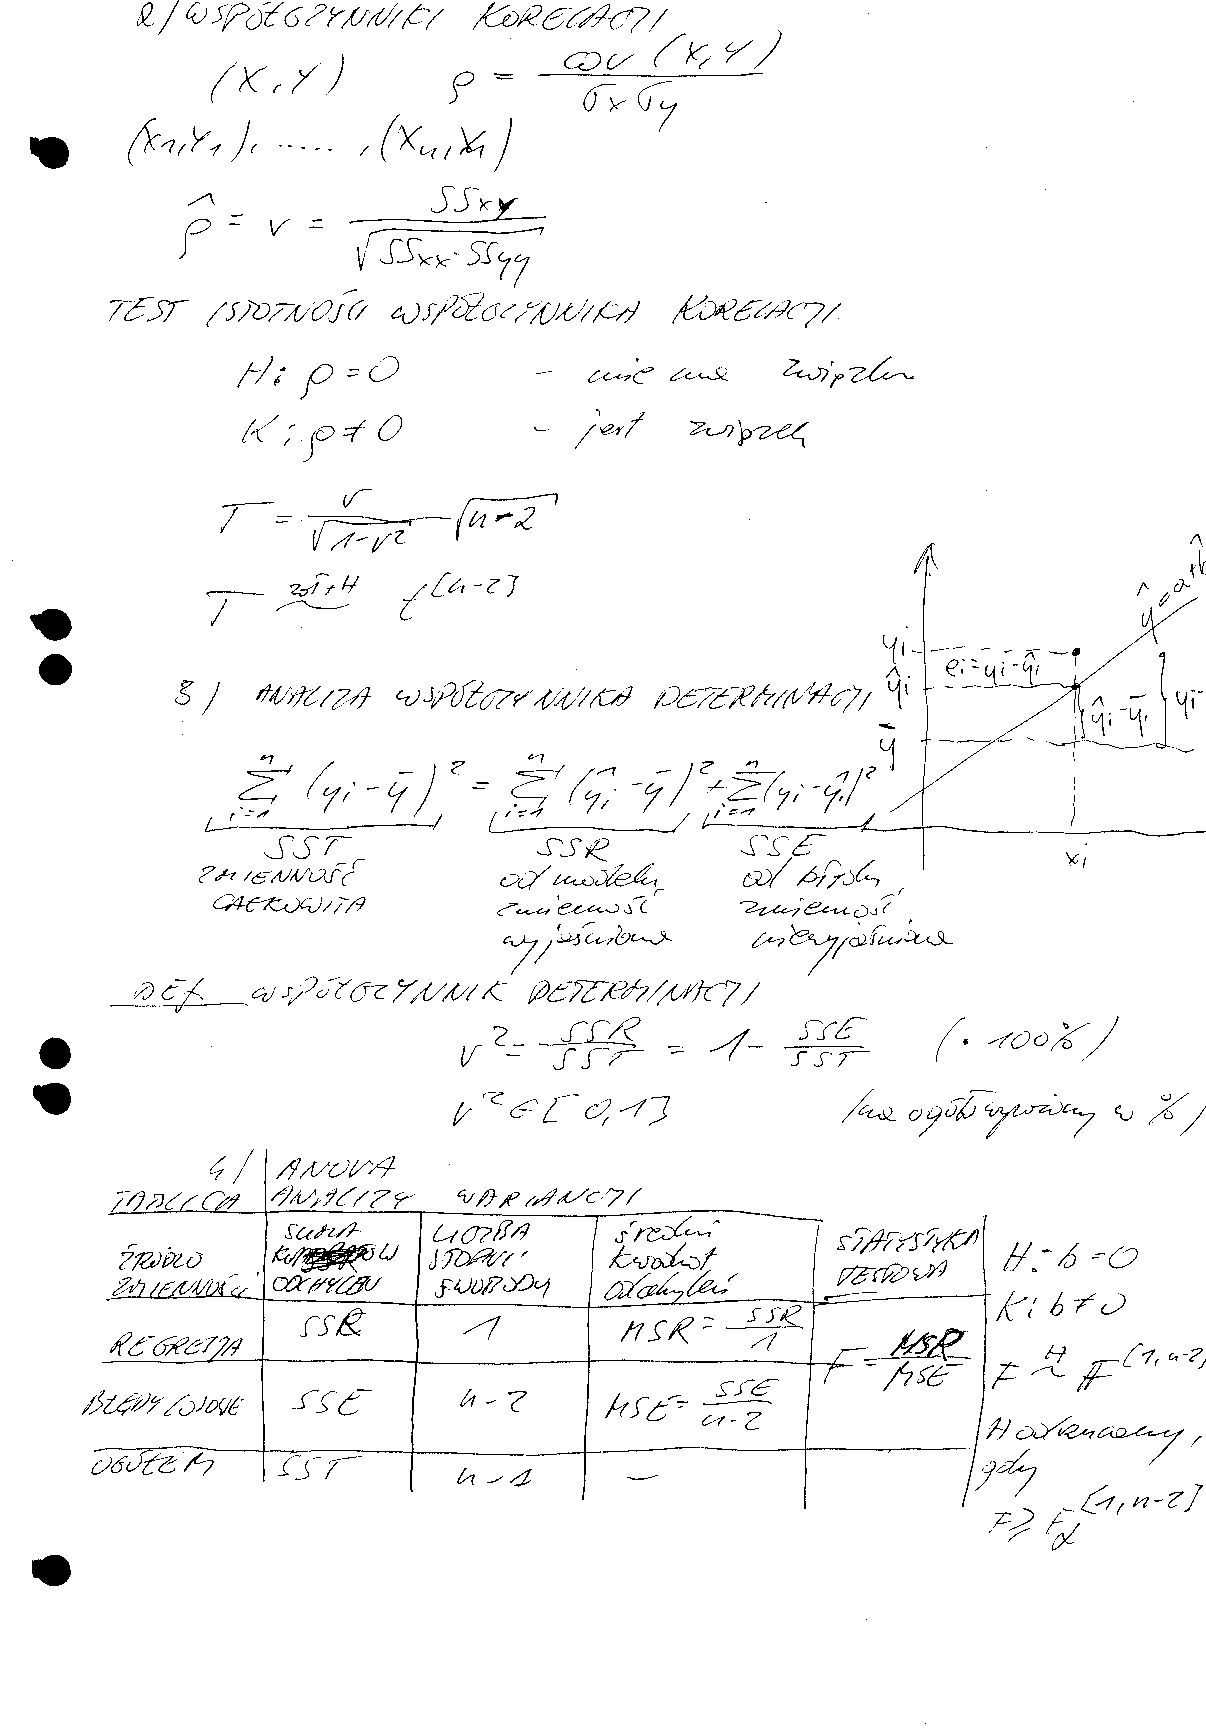 2) WSPÓŁCZYNNIKI KORELACJI
(X, Y) ρ = cov (X, Y) / σx σy
(X1, Y1), ....., (Xn, Yn)
ρ̂ = r = SSxy / √(SSxx · SSyy)
TEST ISTOTNOŚCI WSPÓŁCZYNNIKA KORELACJI
H: ρ = 0 - nie ma związku
K: ρ ≠ 0 - jest związek
T = r / √(1-r²) √(n-2)
T ~ t[n-2]
3) ANALIZA WSPÓŁCZYNNIKA DETERMINACJI
yi
ŷi
ȳ
ei = yi - ŷi
ŷi - ȳ
xi
∑ i=1 n (yi - ȳ)² = ∑ i=1 n (ŷi - ȳ)² + ∑ i=1 n (yi - ŷi)²
SST SSR SSE
ZMIENNOŚĆ od modelu, od błędu,
CAŁKOWITA zmienność zmienność
wyjaśniona niewyjaśniona
DEF. WSPÓŁCZYNNIK DETERMINACJI
r² = SSR / SST = 1 - SSE / SST (· 100%)
r² ∈ [0,1] (na ogół wyrażony w %)
4) ANOVA
TABLICA ANALIZY WARIANCJI
ŹRÓDŁO ZMIENNOŚCI SUMA KWADRATÓW ODCHYLEŃ LICZBA STOPNI SWOBODY średni kwadrat odchyleń STATYSTYKA TESTOWA
REGRESJA SSR 1 MSR = SSR / 1 F = MSR / MSE
BŁĘDY LOSOWE SSE n-2 MSE = SSE / n-2
OGÓŁEM SST n-1 —
H: b = 0
K: b ≠ 0
F ~ H F[1, n-2]
H odrzucamy,
gdy
F ≥ Fα[1, n-2]